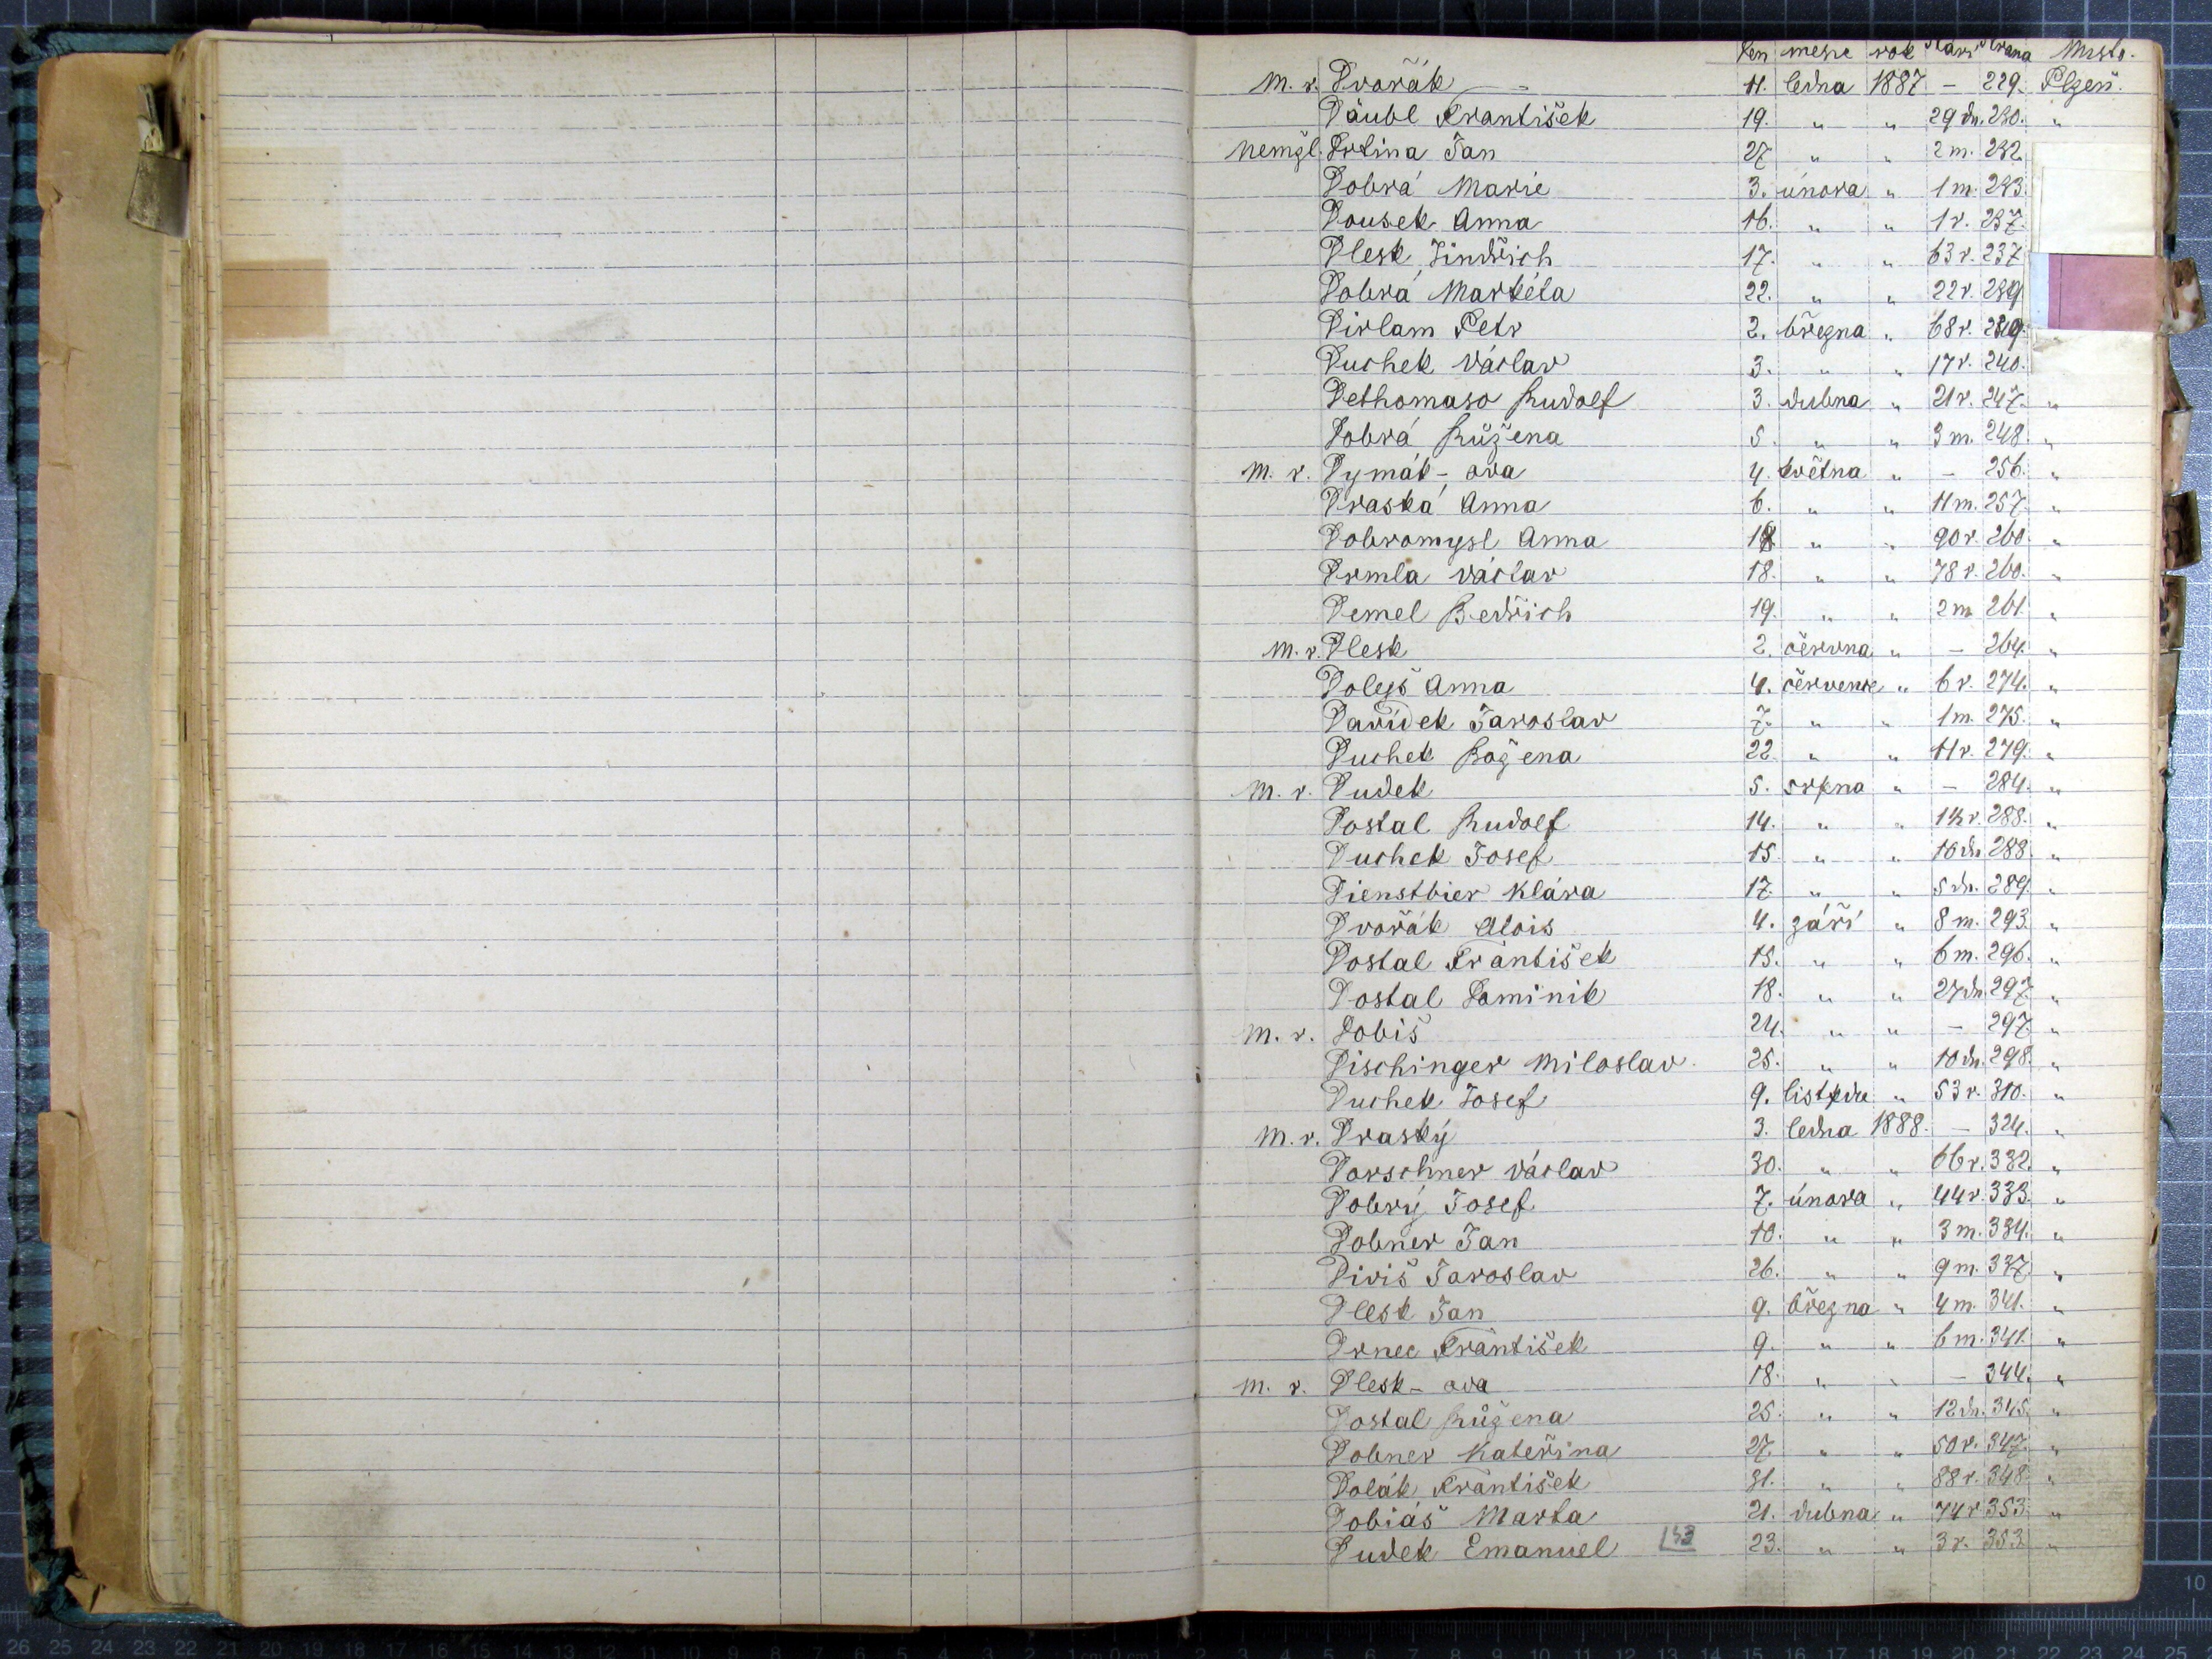 Den měsíc rok Stáří Strana Místo.
M. r. Dvořák — 11. ledna 1887 — 229. Plzeň.
Däubl František 19. " " 29 dn. 230. "
Nemgl. Drtina Jan 27 " " 2 m. 232
Dobrá Marie 3. února " 1 m. 233.
Dousek Anna 16. " " 1 r. 237.
Dlesk Jindřich 17. " " 63 r. 237
Dobrá Markéta 22. " " 22 r. 239
Dirlam Petr 2. března " 68 r. 239.
Duchek Václav 3. " " 17 r. 240.
Dethomaso Rudolf 3. dubna " 21 r. 247. "
Dobrá Růžena 5. " " 3 m. 248. "
M. r. Dymák - ova 4. května " — 256. "
Draská Anna 6. " " 11 m. 257. "
Dobromysl Anna 18 " " 90 r. 260. "
Drmla Václav 18. " " 78 r. 260. "
Demel Bedřich 19. " " 2 m 261. "
M. r. Dlesk 2. června " — 264. "
Dolejš Anna 4. července " 6 r. 274. "
Davídek Jaroslav 7. " " 1 m. 275. "
Duchek Božena 22 " " 11 r. 279. "
M. r. Dudek 5. srpna " — 284. "
Dostal Rudolf 14. " " r. 288. "
Duchek Josef 15 " " 10 dn. 288. "
Dienstbier Klára 17. " " 5 dn. 289. "
Dvořák Alois 4. září " 8 m. 293. "
Dostal František 15. " " 6 m. 296. "
Dostal Dominik 18. " " 27 dn. 297. "
M. r. Dobiš 24. " " — 297. "
Dischinger Miloslav. 25. " " 10 dn. 298. "
Duchek Josef 9. listpdu " 53 r. 310. "
M. r. Draský 3. ledna 1888. — 324. "
Dorschner Václav 30. " " 66 r. 332. "
Dobrý Josef 7. února " 44 r. 333. "
Dobner Jan 10. " " 3 m. 334. "
Diviš Jaroslav 26. " " 9 m. 337. "
Dlesk Jan 9. března " 4 m. 341. "
Drnec František 9. " " 6 m. 341. "
M. r. Dlesk - ova 18. " " — 344. "
Dostal Růžena 25. " " 12 dn. 345. "
Dobner Kateřina 27. " " 50 r. 347. "
Dolák František 31. " " 88 r. 348. "
Dobiáš Marta 21. dubna " 74 r. 353. "
Dudek Emanuel 23. " " 3 r. 353. "